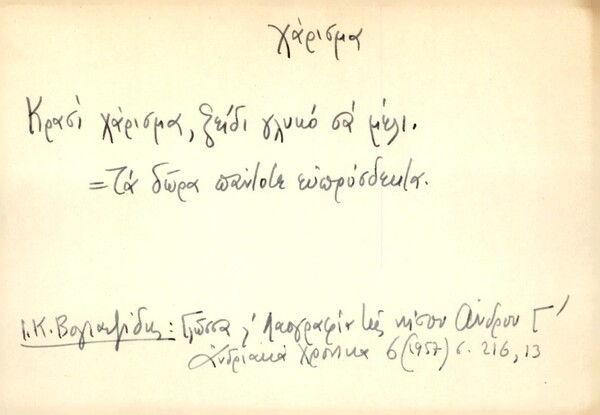 χάρισμα
Κρασί χάρισμα, ξείδι γλυκό σά μέλι.
= Τά δῶρα πάντοτε εὐπρόσδεκτα.
Ι. Κ. Βογιατζίδης: Γλῶσσα κ' Λαογραφία τῆς νήσου Ἄνδρου Γ'
Ἀνδριακά Χρονικά 6 (1957) σ. 216, 13